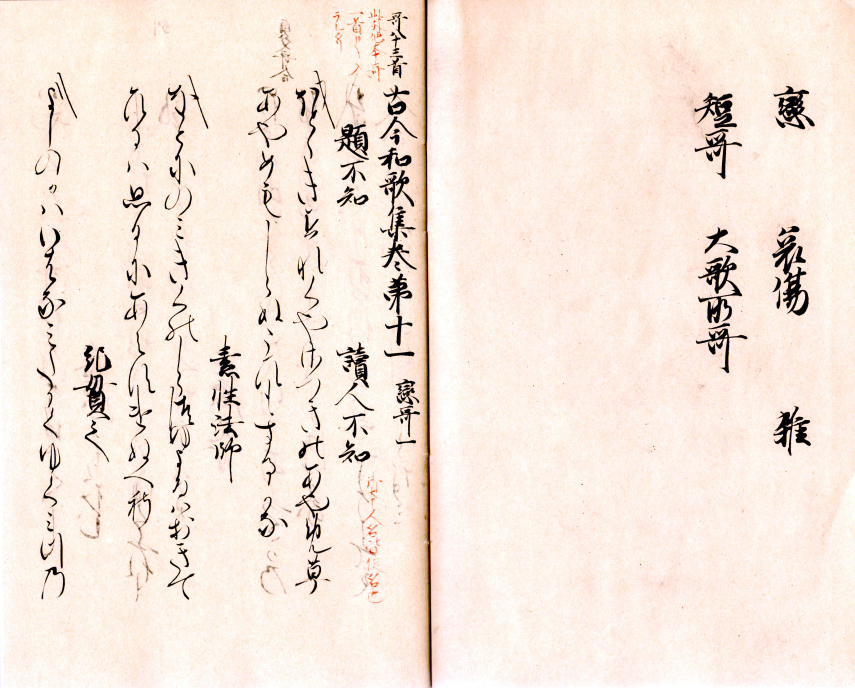 戀 哀傷 雜
短哥 大歌所哥
哥八十三首
古今和歌集巻第十一 戀哥一
題不知 讀人不知
ほとゝきすなくやさつきのあやめ草
あやめもしらぬこひもするかな
素性法師
をとにのみきくのしらつゆよるはおきて
ひるは思ひにあへすけぬへし
紀貫之
よしのかはいはなみたかくゆくみつの